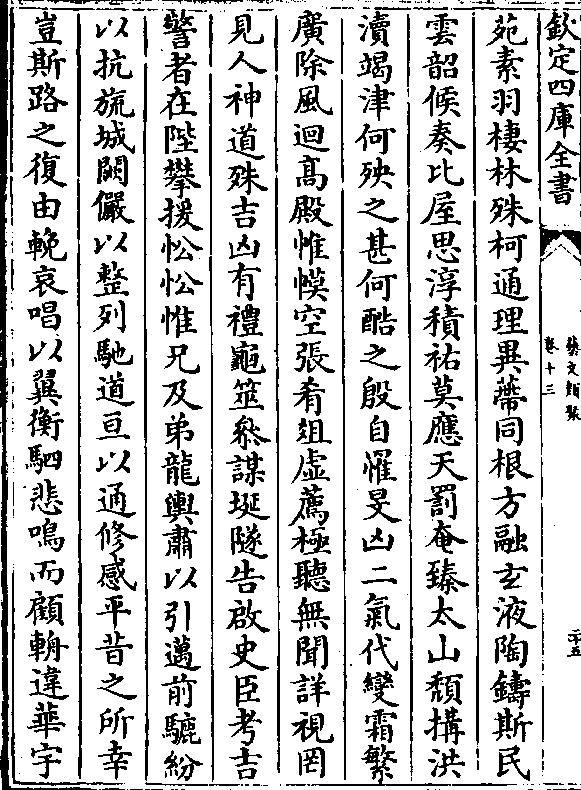 欽定四庫全書
藝文類聚
卷十三
二十五
苑素羽棲林殊柯通理異蔕同根方融玄液陶鑄斯民
雲韶候奏比屋思淳積祐莫應天罰奄臻太山頽搆洪
瀆竭津何殃之甚何酷之殷自罹旻凶二氣代變霜繁
廣除風迴髙殿帷幙空張肴俎虛薦極聽無聞詳視罔
見人神道殊吉凶有禮龜筮叅謀埏隧告啟史臣考吉
警者在陛攀援忪忪惟兄及弟龍輿肅以引邁前驅紛
以抗旒城闕儼以整列馳道亘以通修感平昔之所幸
豈斯路之復由輓哀唱以翼衡駟悲鳴而顧輈違華宇